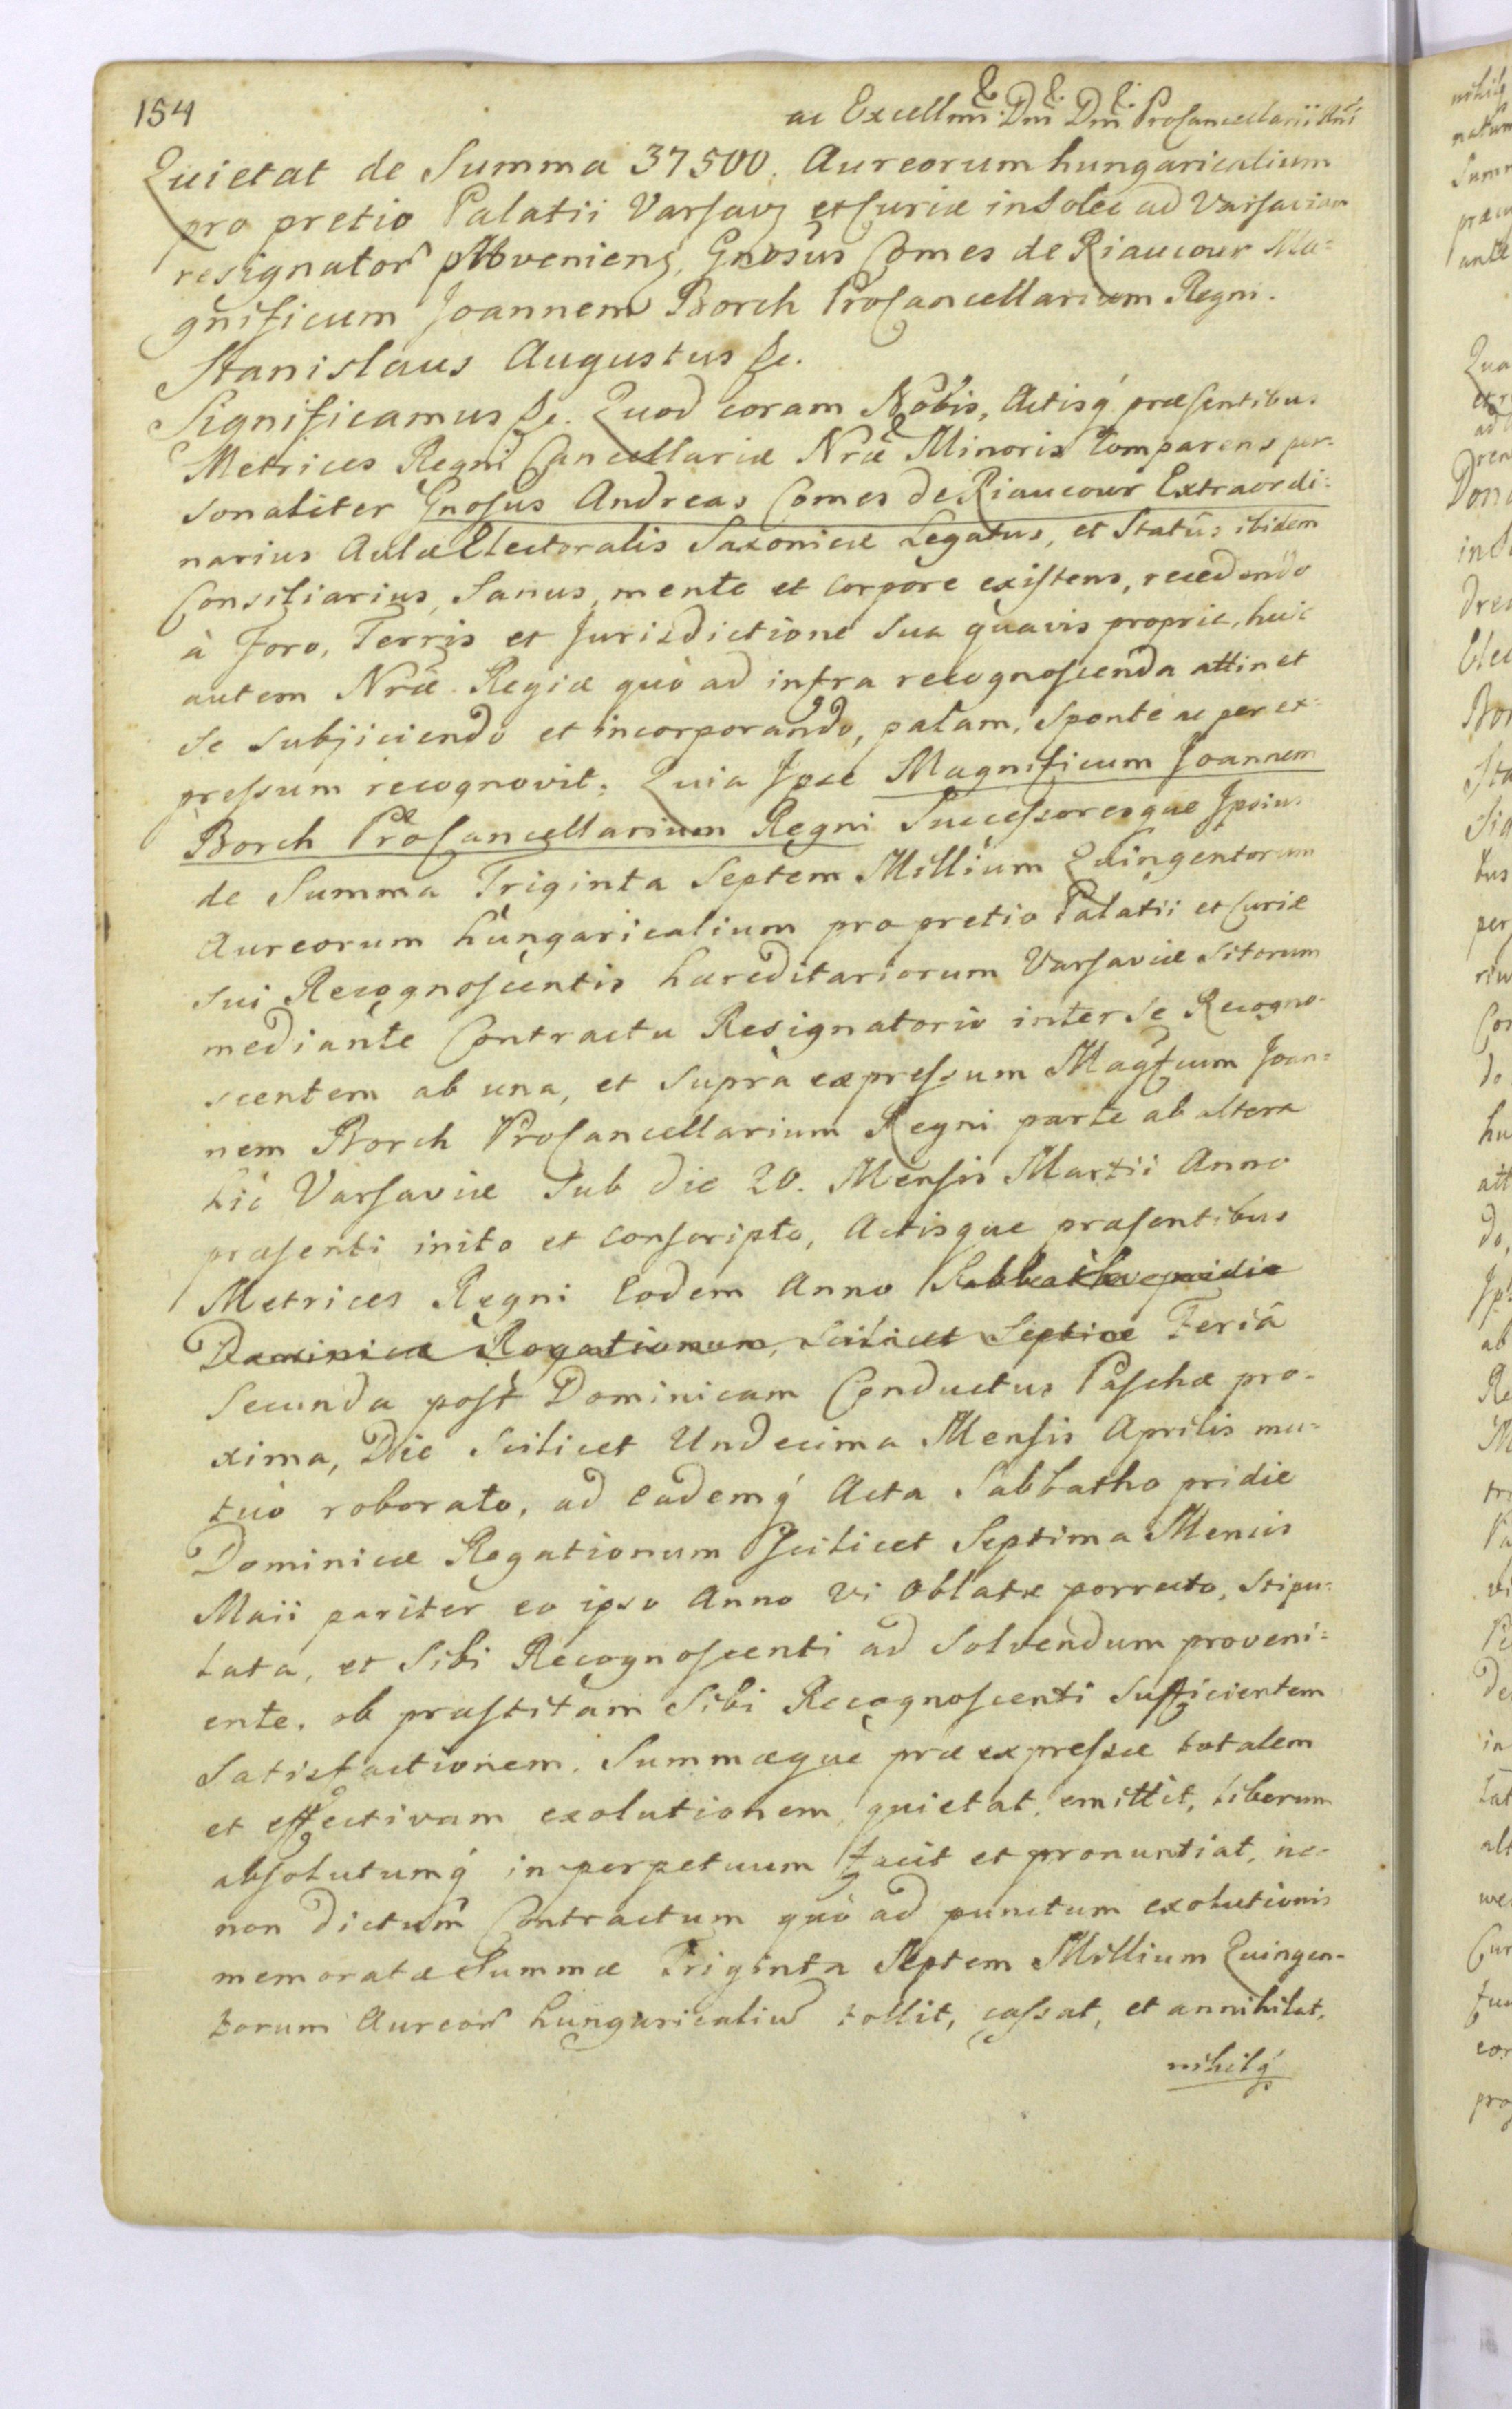 154
ac Excellmi Dni Dni ProCancellarii Rni
Quietat de Summa 37500. Aureorum hungaricalium
pro pretio Palatii Varsav et Curiæ in Solec ad Varsaviam
resignator provenien, Gnosus Comes de Riaucour Ma=
gnificum Joannem Borch ProCancellarium Regni.
Stanislaus Augustus &c.
Significamus &c. Quod coram Nobis, Actisq́ præsentibus
Metrices Regni Cancellariæ Nræ Minoris Comparens per=
sonaliter Gnosus Andreas Comes de Riaucour Extraordi=
narius Aulæ Electoralis Saxonicæ Legatus, et Statûs ibidem
Consiliarius, Sanus, mente et corpore existens, recedendo
à Foro, Terris et Jurisdictione sua quavis propria, huic
autem Nræ Regiæ quò ad infra recognoscenda attinet
se subjiciendo et incorporando, palam, sponte ac per ex=
pressum recognovit: Quia Ipse Magnificum Joannem
Borch ProCancellarium Regni Successoresque Ipsius
de Summa Triginta Septem Millium Quingentorum
Aureorum hungaricalium pro pretio Palatii et Curiæ
sui Recognoscentis hæreditariorum Varsaviæ sitorum
mediante Contractu Resignatorio inter se Recogno-
scentem ab una, et supra expressum Magfcum Joan=
nem Borch ProCancellarium Regni parte ab altera
hic Varsaviæ sub die 20. Mensis Martii Anno
præsenti inito et conscripto, Actisque præsentibus
Metrices Regni Eodem Anno Sabbatho pridie
Dominicæ Rogationum, scilicet Septima Feriâ
Secunda post Dominicam Conductus Paschæ pro-
xima, Die scilicet Undecima Mensis Aprilis mu=
tuò roborato, ad eademq́ Acta Sabbatho pridie
Dominicæ Rogationum scilicet Septima Mensis
Maii pariter eo ipso Anno vi Oblatæ porrecto, stipu=
lata, et sibi Recognoscenti ad solvendum proveni=
ente, ob præstitam sibi Recognoscenti sufficientem
satisfactionem, Summæque præexpressæ totalem
et effectivam exolutionem, quietat, emittit, liberum
absolutumq́ in perpetuum facit et pronuntiat, nec
non dictum Contractum quò ad punctum exolutionis
memoratæ Summæ Triginta Septem Millium Quingen-
torum Aureor hungaricaliu tollit, cassat, et annihilat,
nihilq́